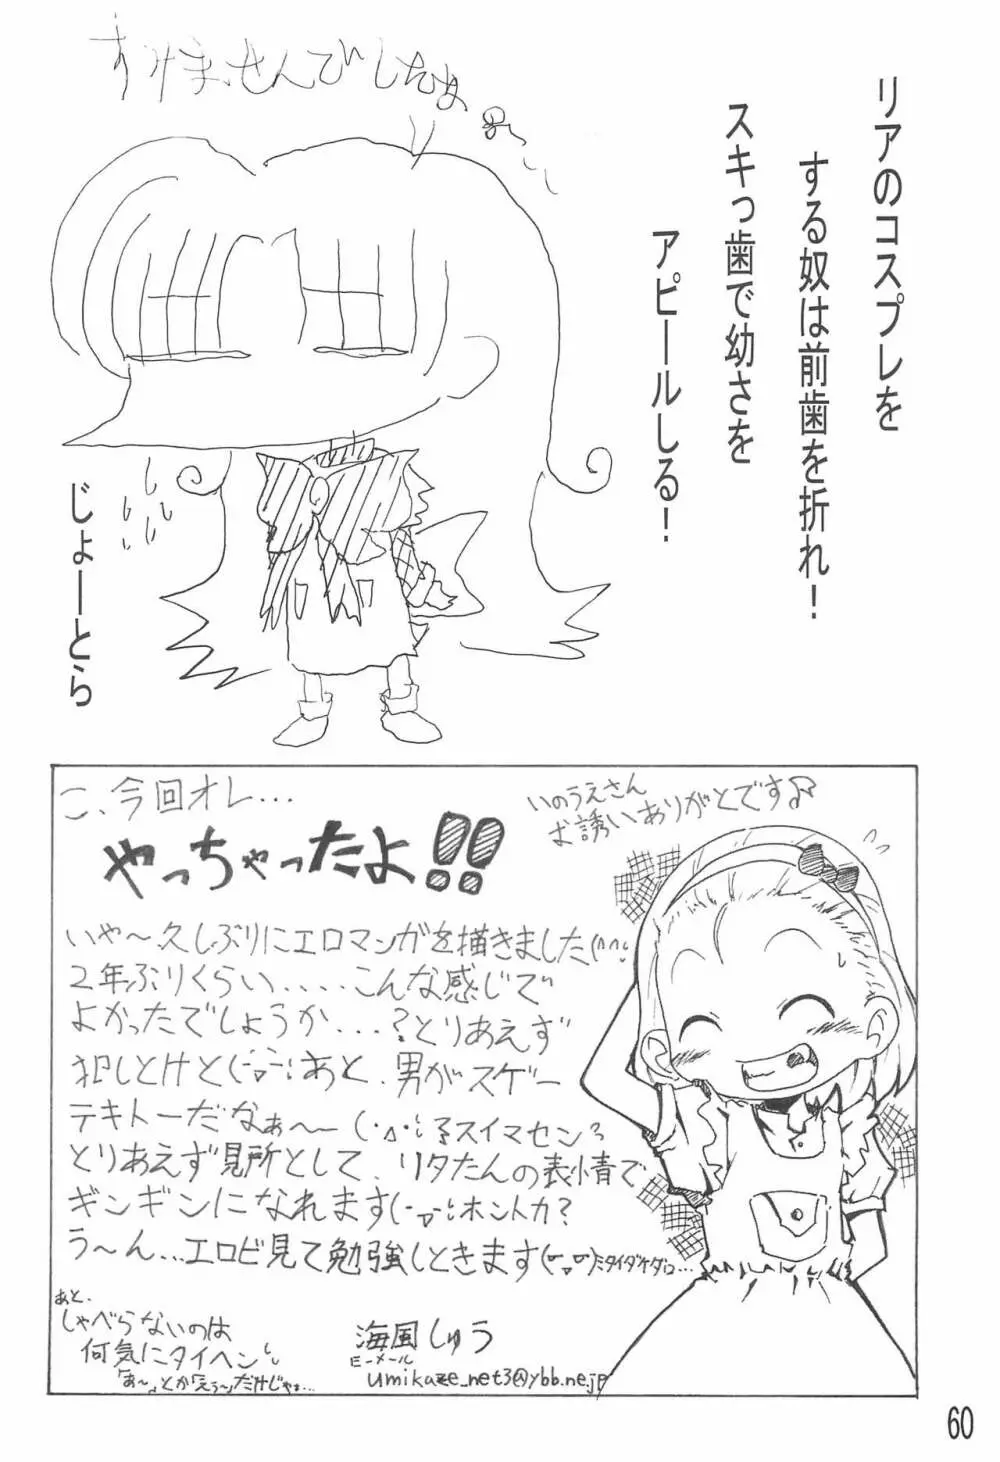 すみませんでしたよ
リアのコスプレを
する奴は前歯を折れ！
スキっ歯で幼さを
アピールしる！
じょーとら
こ、今回オレ…
やっちゃったよ!!
いのうえさん
お誘いありがとです♪
いや～久しぶりにエロマンガを描きました(^^;
2年ぶりくらい.....こんな感じで
よかったでしょうか...?とりあえず
犯しとけと(-▽-;あと、男がスゲー
テキトーだなぁ～～(・△・;スイマセン
とりあえず見所として、リタたんの表情で
ギンギンになれます(-▽-;ホントカ?
う～ん…エロビ見て勉強しときます
あと、
しゃべらないのは
何気にタイヘン
海風しゅう
Eーメール
umikaze_net3@ybb.ne.jp
60